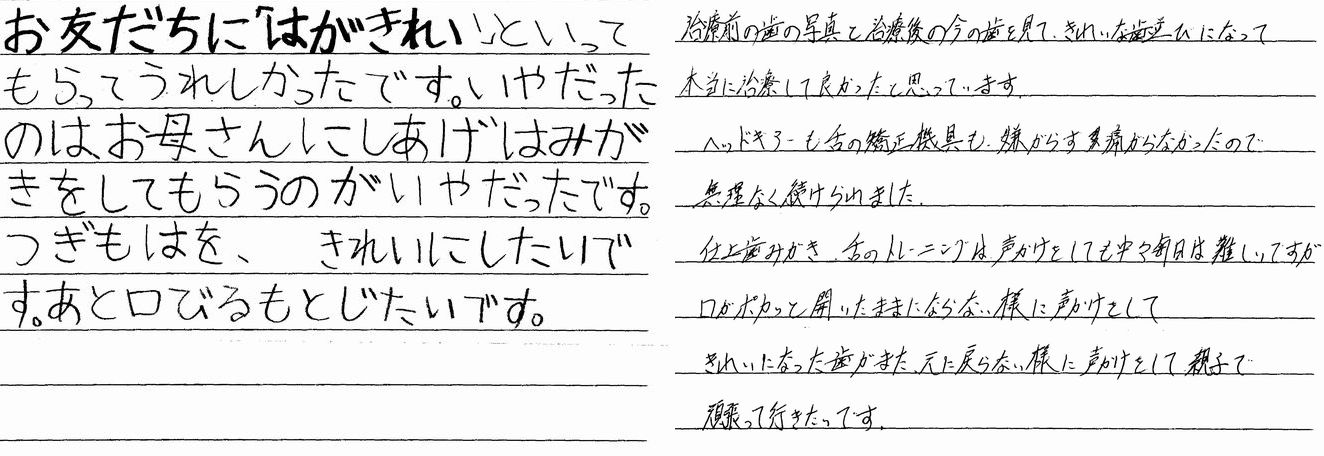 お友だちに「はがきれい」といって
もらってうれしかったです。いやだった
のは、お母さんにしあげはみが
きをしてもらうのがいやだったです。
つぎもはを、 きれいにしたいで
す。あと口びるもとじたいです。
治療前の歯の写真と治療後の今の歯を見て、きれいな歯並びになって
本当に治療して良かったと思っています。
ヘッドギアーも舌の矯正機具も、嫌がらず痛がらなかったので
無理なく続けられました。
仕上歯みがき、舌のトレーニングは声かけをしても中々毎日は難しいですが
口がポカッと開いたままにならない様に声かけをして
きれいになった歯がまた、元に戻らない様に声かけをして親子で
頑張って行きたいです。